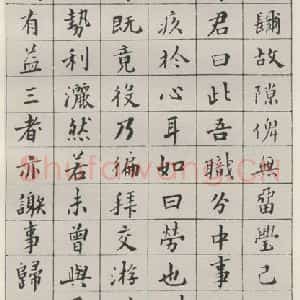 镾故隙俾畱璺已
君曰此吾職分中事
疚於心耳如曰勞也
既竟役乃徧拜交游
勢利灑然若未曾與
有益三者亦謝事歸
Shufawang.CN